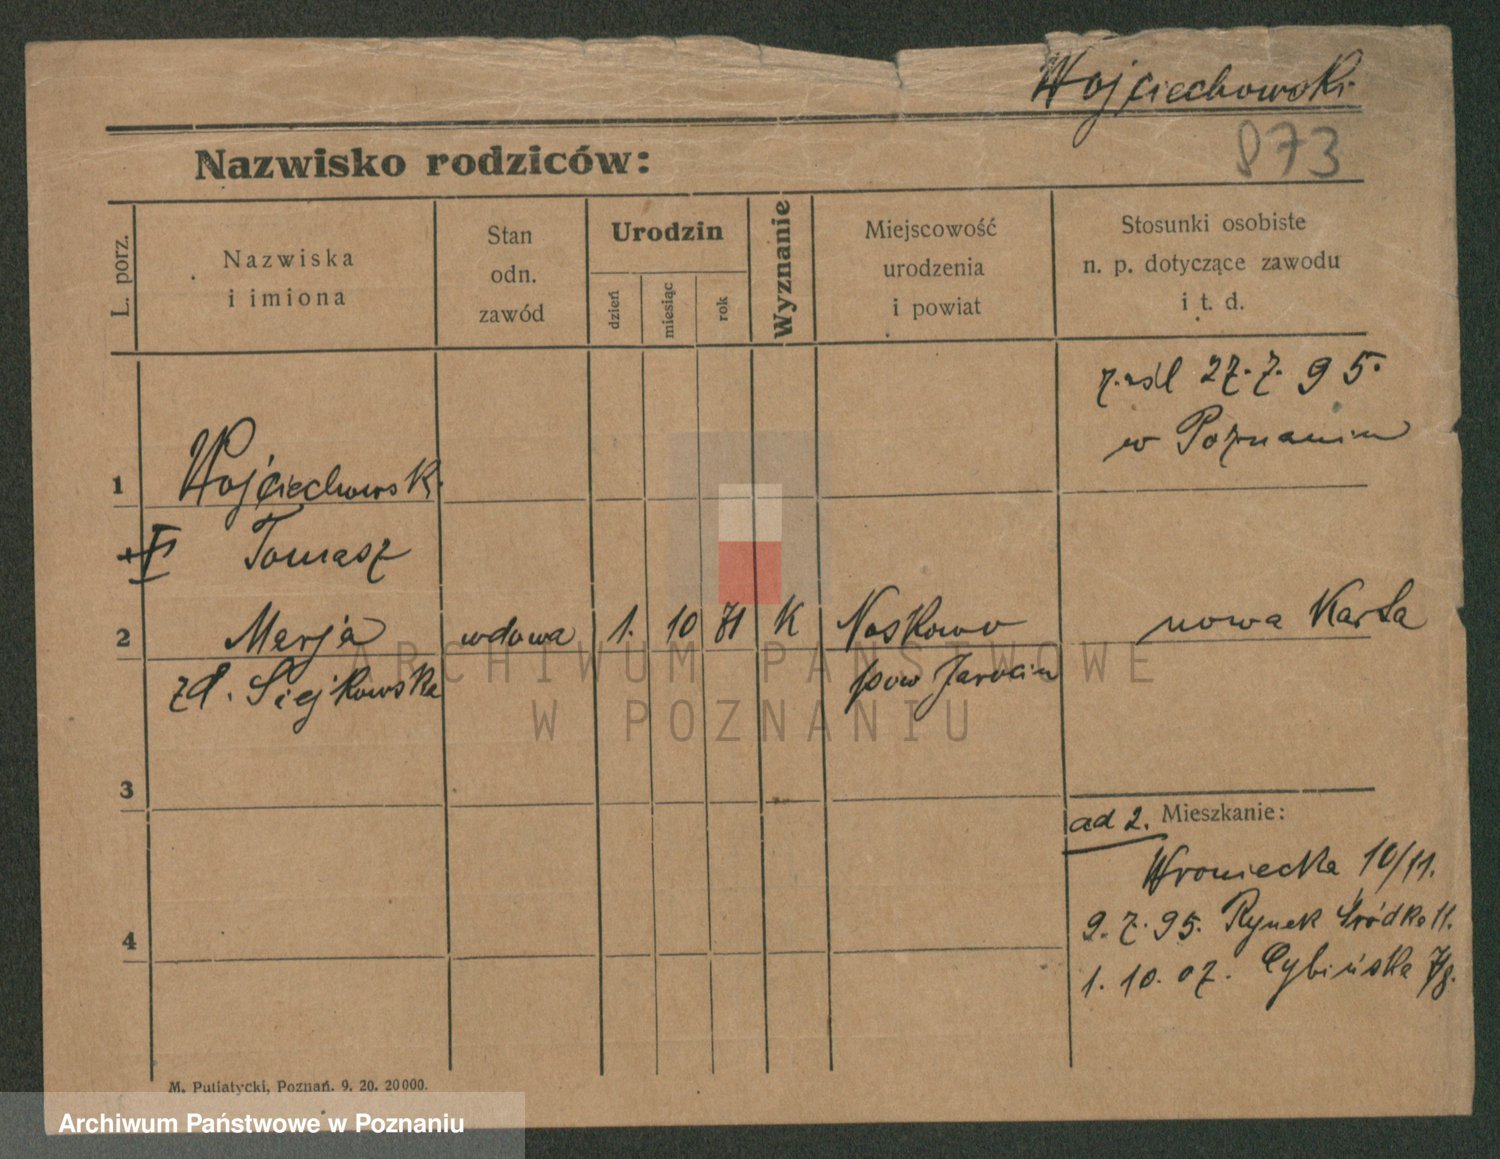 Wojciechowski
873
Nazwisko rodziców:
L. porz.
Nazwiska
i imiona
Stan
odn.
zawód
Urodzin
dzień
miesiąc
rok
Wyznanie
Miejscowość
urodzenia
i powiat
Stosunki osobiste
n. p. dotyczące zawodu
i t. d.
27. 7. 95.
w Poznaniu
1 Wojciechowsk.
Tomasz
2 Marja wdowa 1. 10 71 K Noskowo nowa Karta
zd. Siejkowska pow Jarocin
3
ad 2. Mieszkanie:
Wroniecka 10/11.
9. 7. 95. Rynek Śródka 11.
4
1. 10. 07. Cybińska
M. Putiatycki, Poznań. 9. 20. 20000.
ARCHIWUM PAŃSTWOWE
W POZNANIU
Archiwum Państwowe w Poznaniu